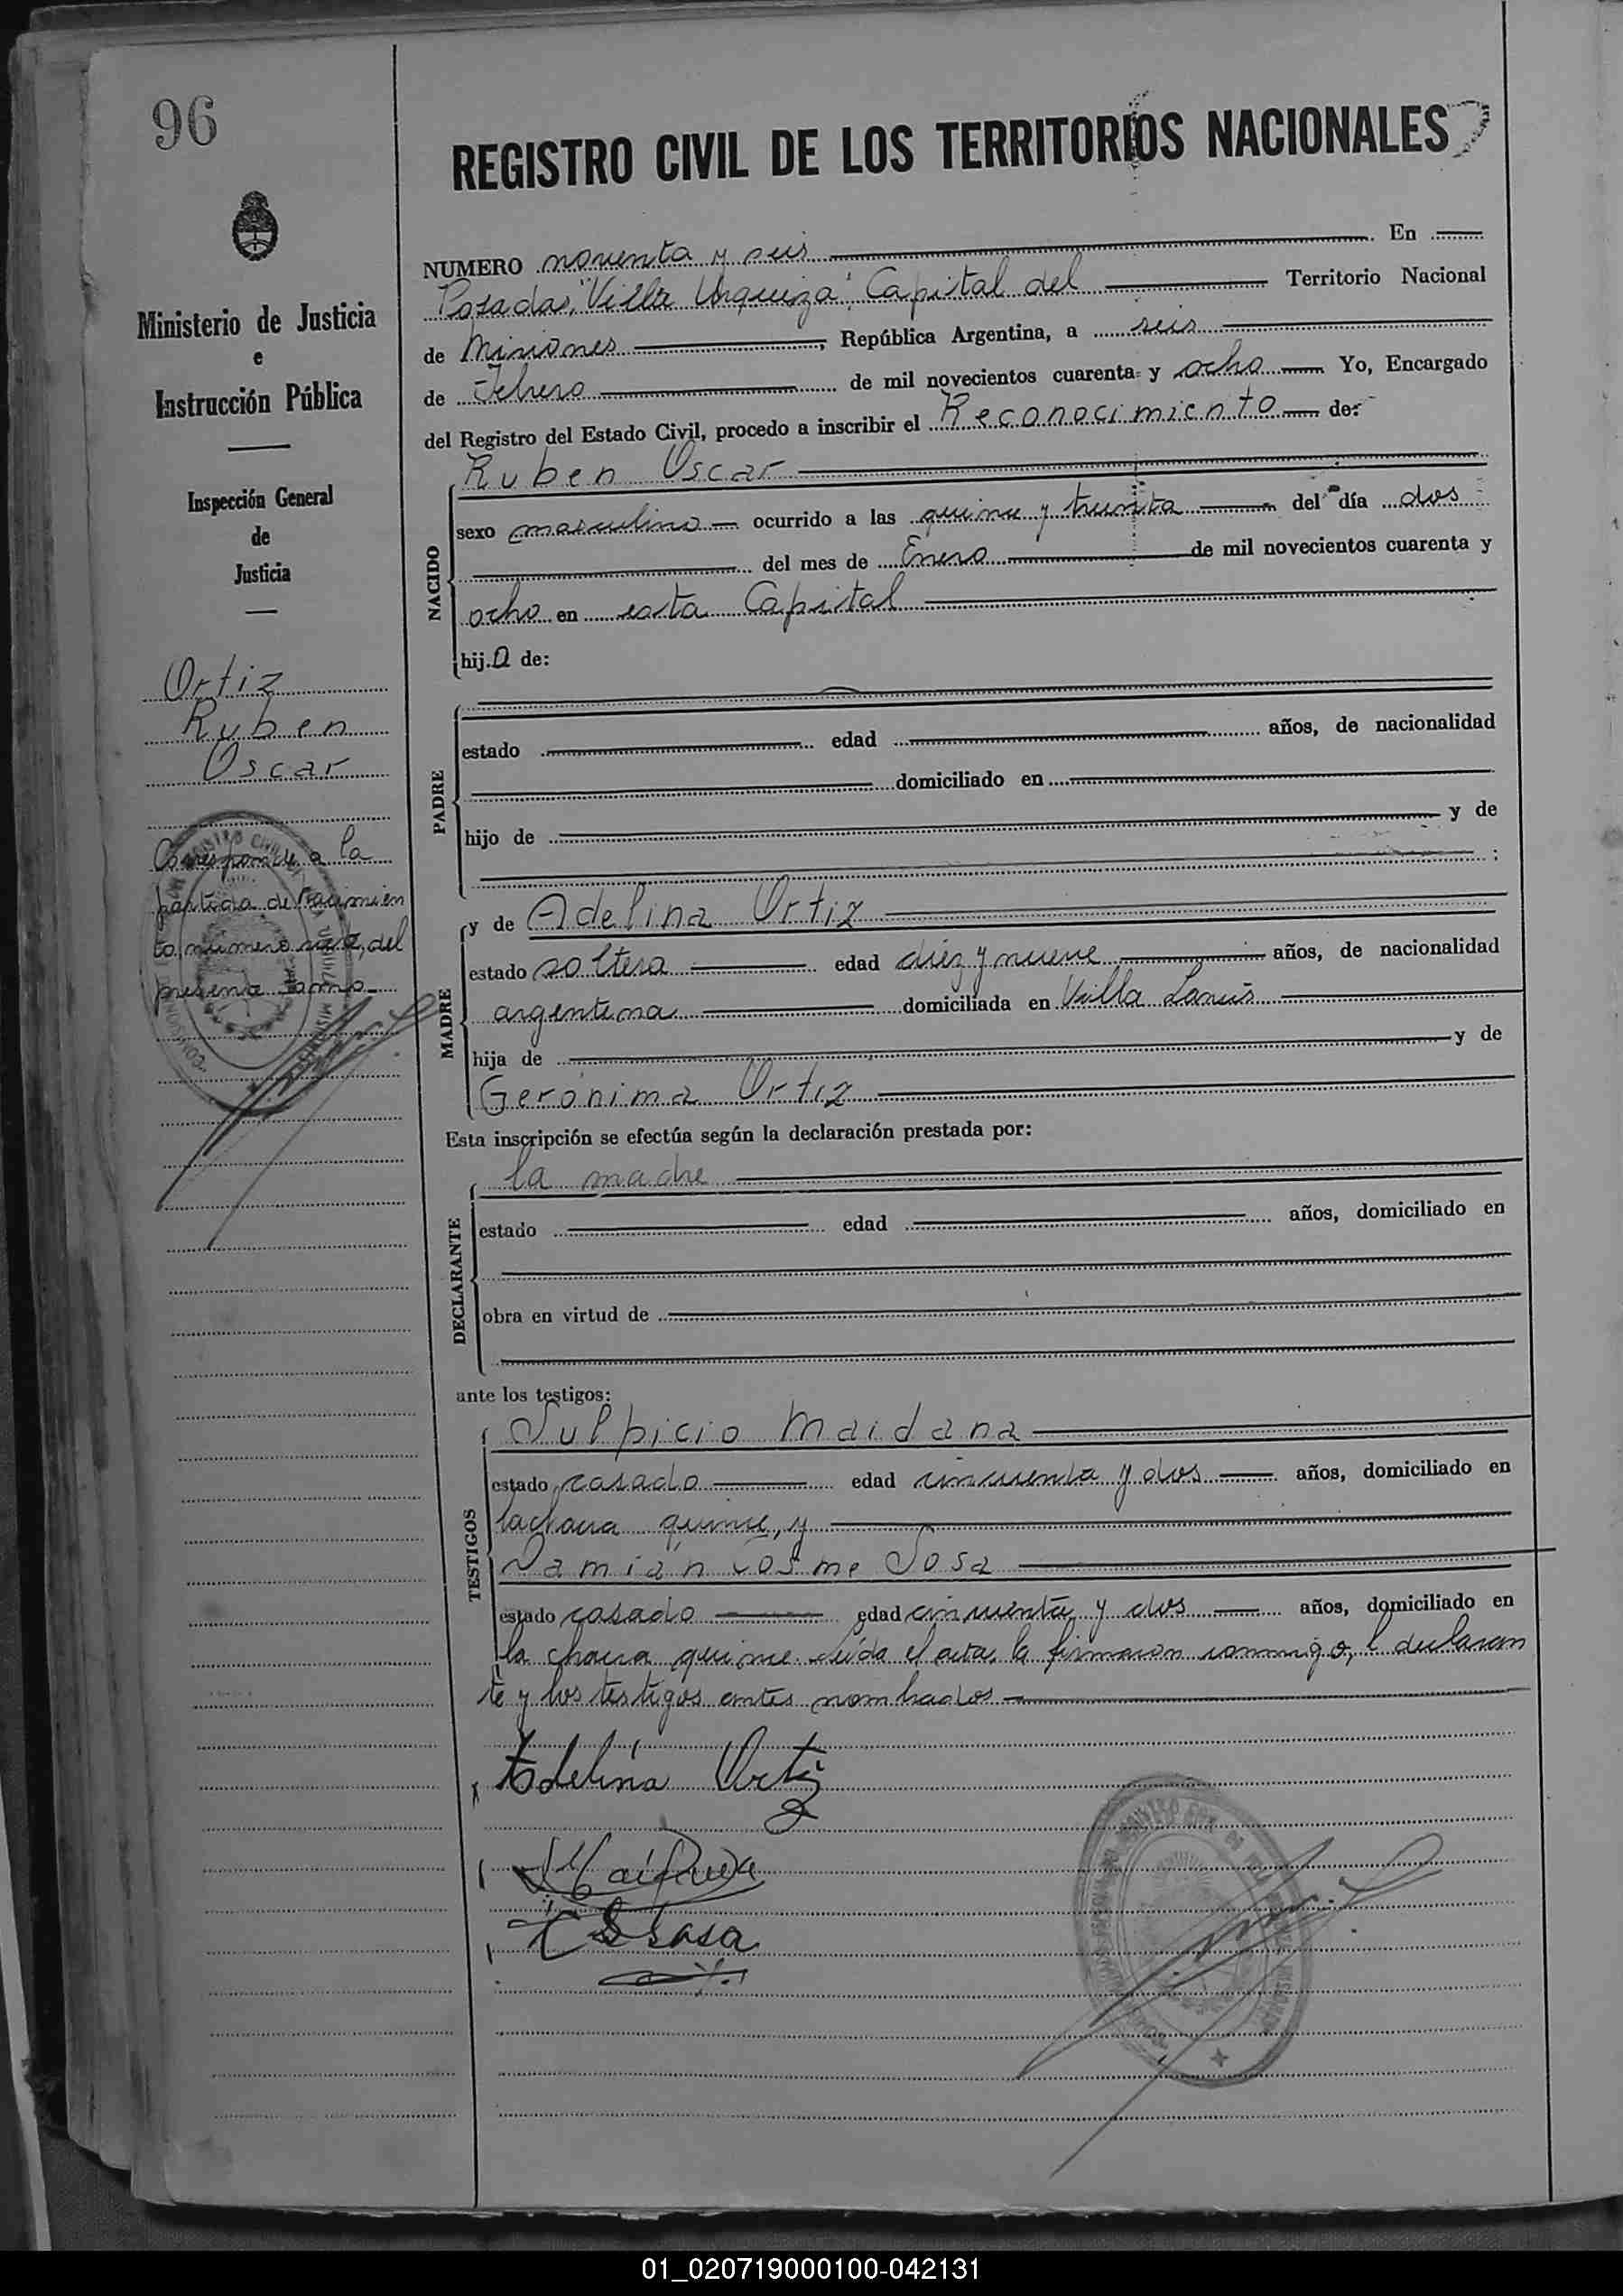 96
REGISTRO CIVIL DE LOS TERRITORIOS NACIONALES
Ministerio de Justicia
e
Instrucción Pública
Inspección General
de
Justicia
Ortiz
Ruben
Oscar
Corresponde a la
partida de Nacimien
to, número del
presente tomo
NUMERO noventa y seis En
Posadas, "Villa Urquiza", Capital del Territorio Nacional
de Misiones, República Argentina, a seis
de Febrero de mil novecientos cuarenta y ocho Yo, Encargado
del Registro del Estado Civil, procedo a inscribir el Reconocimiento de:
Ruben Oscar
NACIDO
sexo masculino ocurrido a las quince y treinta del día dos
del mes de Enero de mil novecientos cuarenta y
ocho en esta Capital
hijo de:
PADRE
estado edad años, de nacionalidad
domiciliado en
hijo de y de
MADRE
y de Adelina Ortiz
estado soltera edad diez y nueve años, de nacionalidad
argentina domiciliada en Villa Lanús
hija de y de
Gerónima Ortiz
Esta inscripción se efectúa según la declaración prestada por:
DECLARANTE
la madre
estado edad años, domiciliado en
obra en virtud de
ante los testigos:
TESTIGOS
Sulpicio Maidana
estado casado edad cincuenta y dos años, domiciliado en
la chacra quince, y
Damián Cosme Sosa
estado casado edad cincuenta y dos años, domiciliado en
la chacra quince. Leída el acta, la firmaron conmigo, l declaran
te y los testigos antes nombrados
Adelina Ortiz
Sosa
01_020719000100-042131